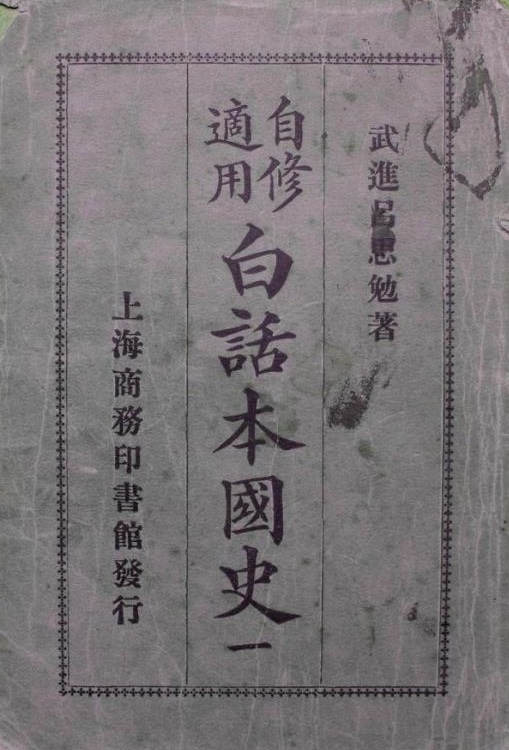 武進呂思勉著
自修
適用
白話本國史一
上海商務印書館發行